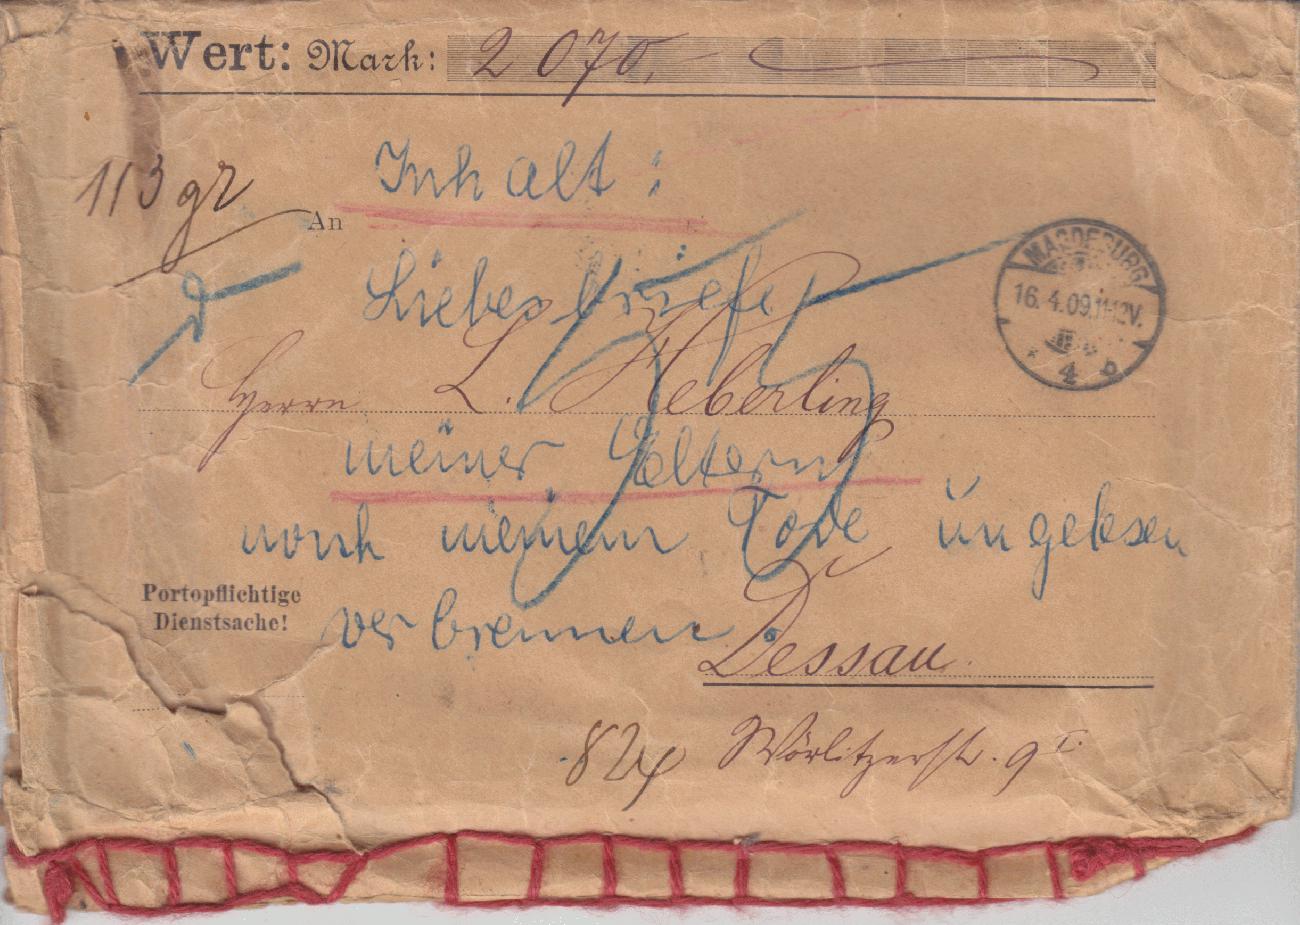 Wert: Mark: 2 070,
113 gr
Inhalt:
An
MAGDEBURG
16. 4. 09. 11-12V.
4 b
Liebesbriefe
Herrn L. Heberling
meiner Eltern
nach meinem Tode ungelesen
Portopflichtige
Dienstsache!
verbrennen.
Dessau.
Wörlitzerstr. 9 I.